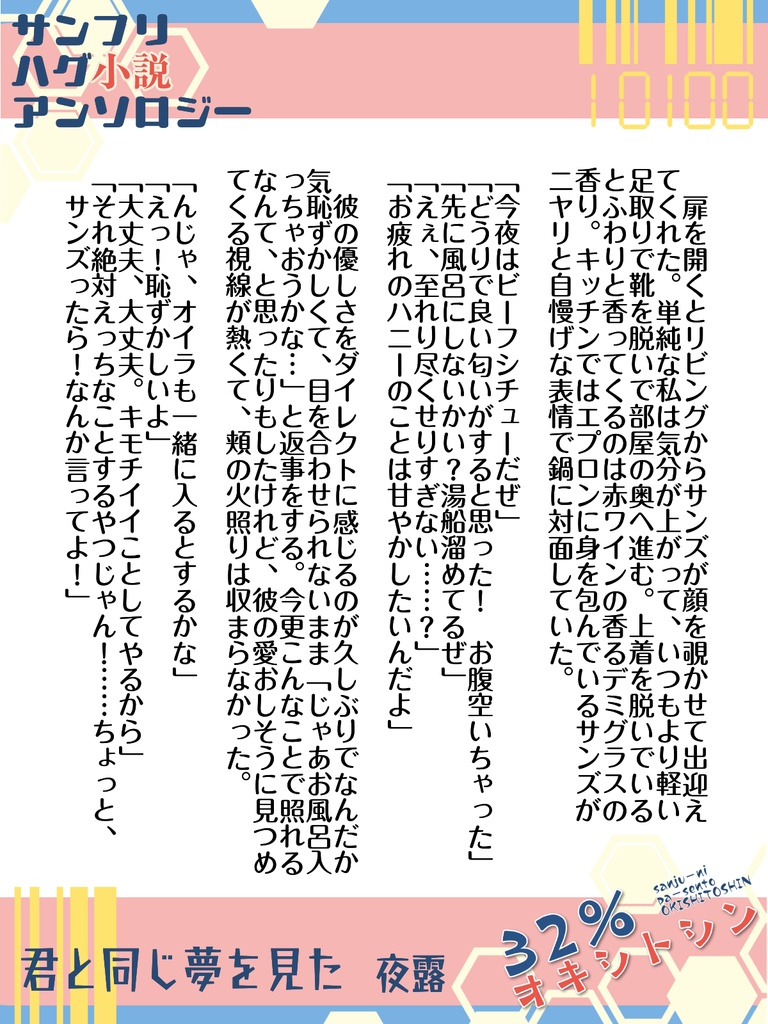 サンフリ
ハグ小説
アンソロジー
10100
扉を開くとリビングからサンズが顔を覗かせて出迎え
てくれた。単純な私は気分が上がって、いつもより軽い
足取りで靴を脱いで部屋の奥へ進む。上着を脱いでいる
とふわりと香ってくるのは赤ワインの香るデミグラスの
香り。キッチンではエプロンに身を包んでいるサンズが
ニヤリと自慢げな表情で鍋に対面していた。
「今夜はビーフシチューだぜ」
「どうりで良い匂いがすると思った!　お腹空いちゃった」
「先に風呂にしないかい?湯船溜めてるぜ」
「えぇ、至れり尽くせりすぎない……?」
「お疲れのハニーのことは甘やかしたいんだよ」
彼の優しさをダイレクトに感じるのが久しぶりでなんだか
気恥ずかしくて、目を合わせられないまま「じゃあお風呂入
っちゃおうかな…」と返事をする。今更こんなことで照れる
なんて、と思ったりもしたけれど、彼の愛おしそうに見つめ
てくる視線が熱くて、頬の火照りは収まらなかった。
「んじゃ、オイラも一緒に入るとするかな」
「えっ!恥ずかしいよ」
「大丈夫、大丈夫。キモチイイことしてやるから」
「それ絶対えっちなことするやつじゃん!……ちょっと、
サンズったら!なんか言ってよ!」
君と同じ夢を見た 夜露
sanju-ni
pa-sento
OKISHITOSHIN
32%
オキシトシン